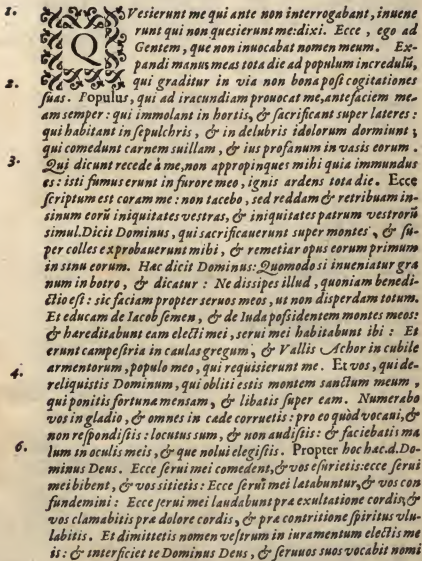 1. QVesierunt me qui ante non interrogabant, inuene
runt qui non quesierunt me: dixi. Ecce, ego ad
Gentem, que non inuocabat nomen meum. Ex-
pandi manus meas tota die ad populum incredulũ,
2. qui graditur in via non bona post cogitationes
suas. Populus, qui ad iracundiam prouocat me, ante faciem me-
am semper: qui immolant in hortis, & sacrificant super lateres:
qui habitant in sepulchris, & in delubris idolorum dormiunt;
qui comedunt carnem suillam, & ius profanum in vasis eorum.
3. Qui dicunt recede à me, non appropinques mihi quia immundus
es: isti fumus erunt in furore meo, ignis ardens tota die. Ecce
scriptum est coram me: non tacebo, sed reddam & retribuam in-
sinum eorũ iniquitates vestras, & iniquitates patrum vestrorũ
simul. Dicit Dominus, qui sacrificauerunt super montes, & su-
per colles exprobauerunt mihi, & remetiar opus eorum primum
in sinu eorum. Hac dicit Dominus: Quomodo si inueniatur gra
num in botro, & dicatur: Ne dissipes illud, quoniam benedi-
ctio est: sic faciam propter seruos meos, ut non disperdam totum.
Et educam de Iacob semen, & de Iuda possidentem montes meos:
& hareditabunt eam electi mei, serui mei habitabunt ibi: Et
erunt campestria in caulas gregum, & Vallis Achor in cubile
armentorum, populo meo, qui requisierunt me. Et vos, qui de-
4. reliquistis Dominum, qui obliti estis montem sanctum meum,
qui ponitis fortuna mensam, & libatis super eam. Numerabo
vos in gladio, & omnes in cade corruetis: pro eo quòd vocaui, &
non respondistis: locutus sum, & non audistis: & faciebatis ma
lum in oculis meis, & que nolui elegistis. Propter hoc hac. d. Do-
6. minus Deus. Ecce serui mei comedent, & vos esurietis: ecce serui
mei bibent, & vos sitietis: Ecce serui mei latabuntur, & vos con
fundemini: Ecce serui mei laudabunt pra exultatione cordis, &
vos clamabitis pra dolore cordis, & pra contritione spiritus vlu-
labitis. Et dimittetis nomen vestrum in iuramentum electis me
is: & interficiet te Dominus Deus, & seruos suos vocabit nomi